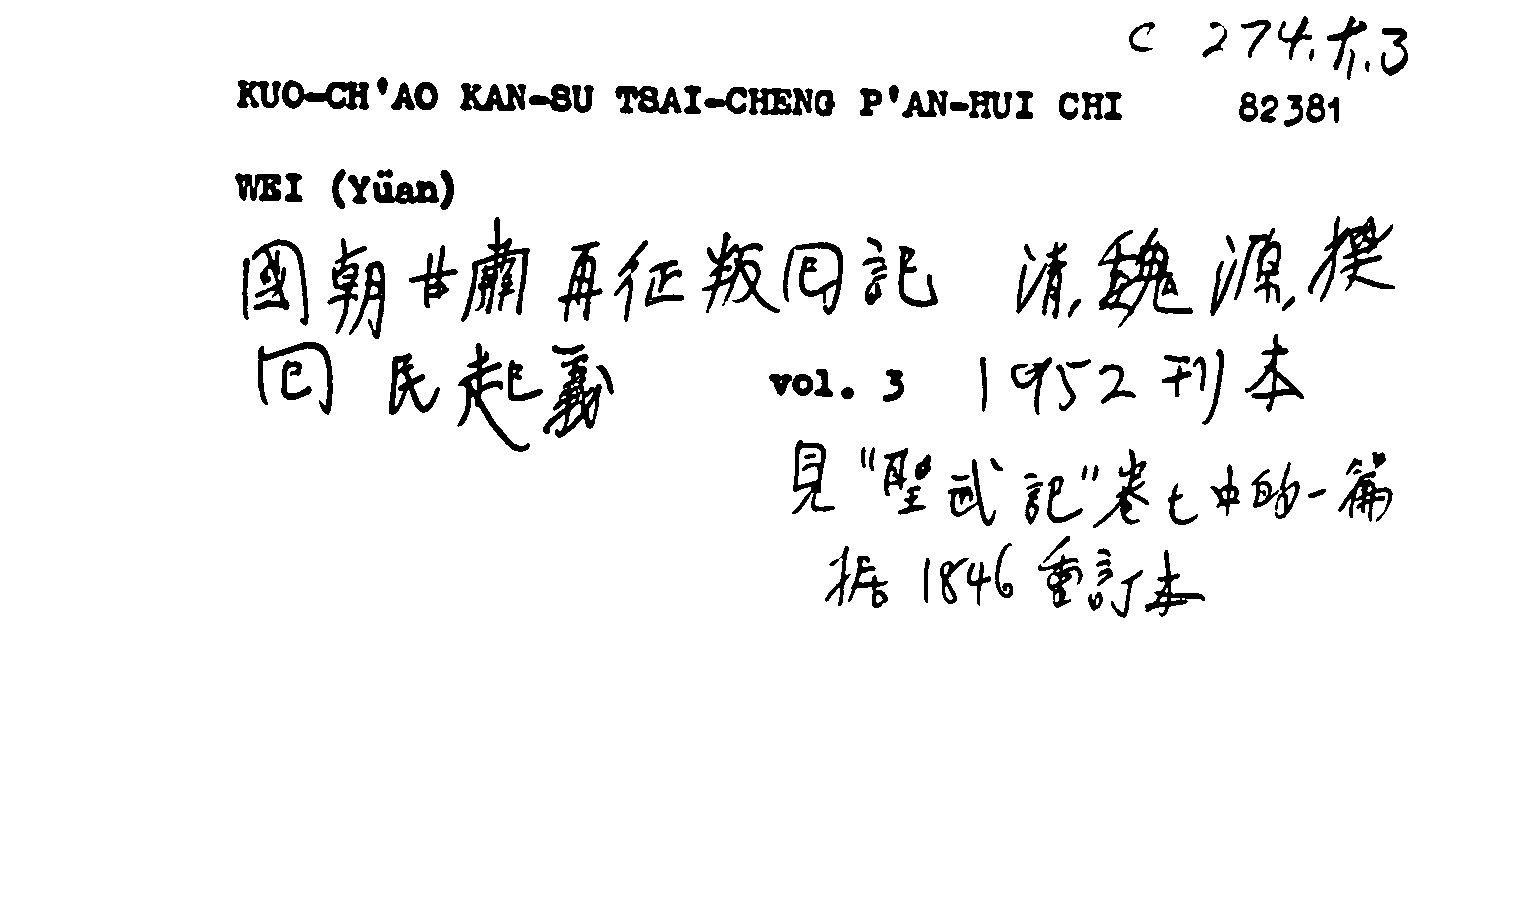 C 274.大.3
KUO-CH'AO KAN-SU TSAI-CHENG P'AN-HUI CHI 82381
WEI (Yüan)
國朝甘肅再征叛回記 清.魏源.撰
回民起義 vol. 3 1952刊本
見"聖武記"卷七中的一篇
据1846重訂本